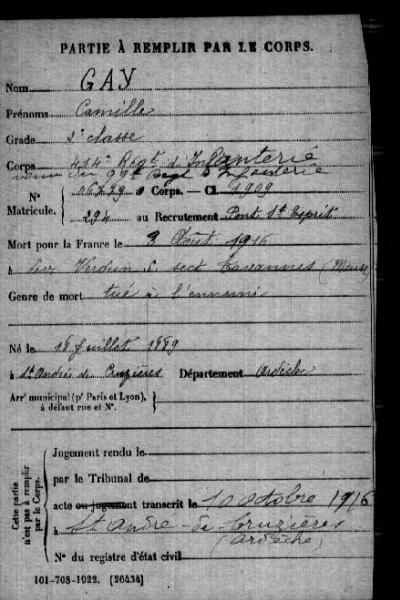 PARTIE À REMPLIR PAR LE CORPS.
Nom GAY
Prénoms Camille
Grade 2e classe
Corps 414e Régt d'Infanterie
venu du 99e Régt d'Infanterie
N° Matricule. au Corps. — Cl. 1909
294 au Recrutement Pont St Esprit
Mort pour la France le 3 Août 1916
à dvt Verdun S. sect Tavannes (Meuse)
Genre de mort tué à l'ennemi
Né le 18 Juillet 1889
à St André de Cruzières Département Ardèche
Arrt municipal (pr Paris et Lyon),
à défaut rue et N°.
Cette partie n'est pas à remplir par le Corps.
Jugement rendu le
par le Tribunal de
acte ou jugement transcrit le 10 Octobre 1916
à St André-de Cruzières
(Ardèche)
N° du registre d'état civil
101-708-1922. [26434]